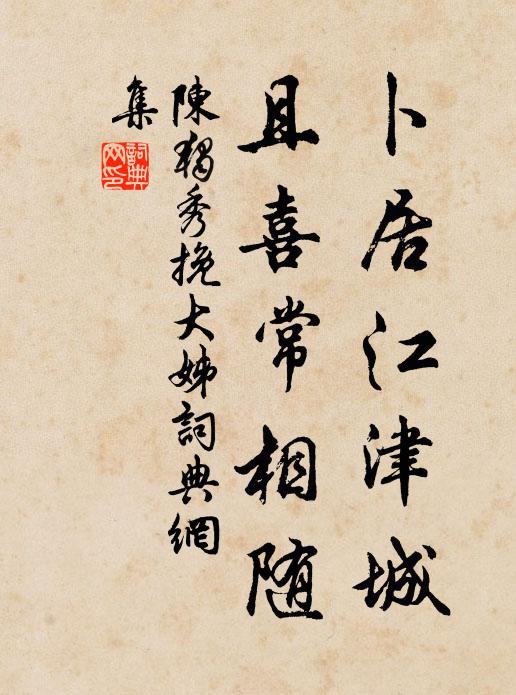 卜居江津城
且喜常相随
陳獨秀挽大姊詞典網
集
詞典網印